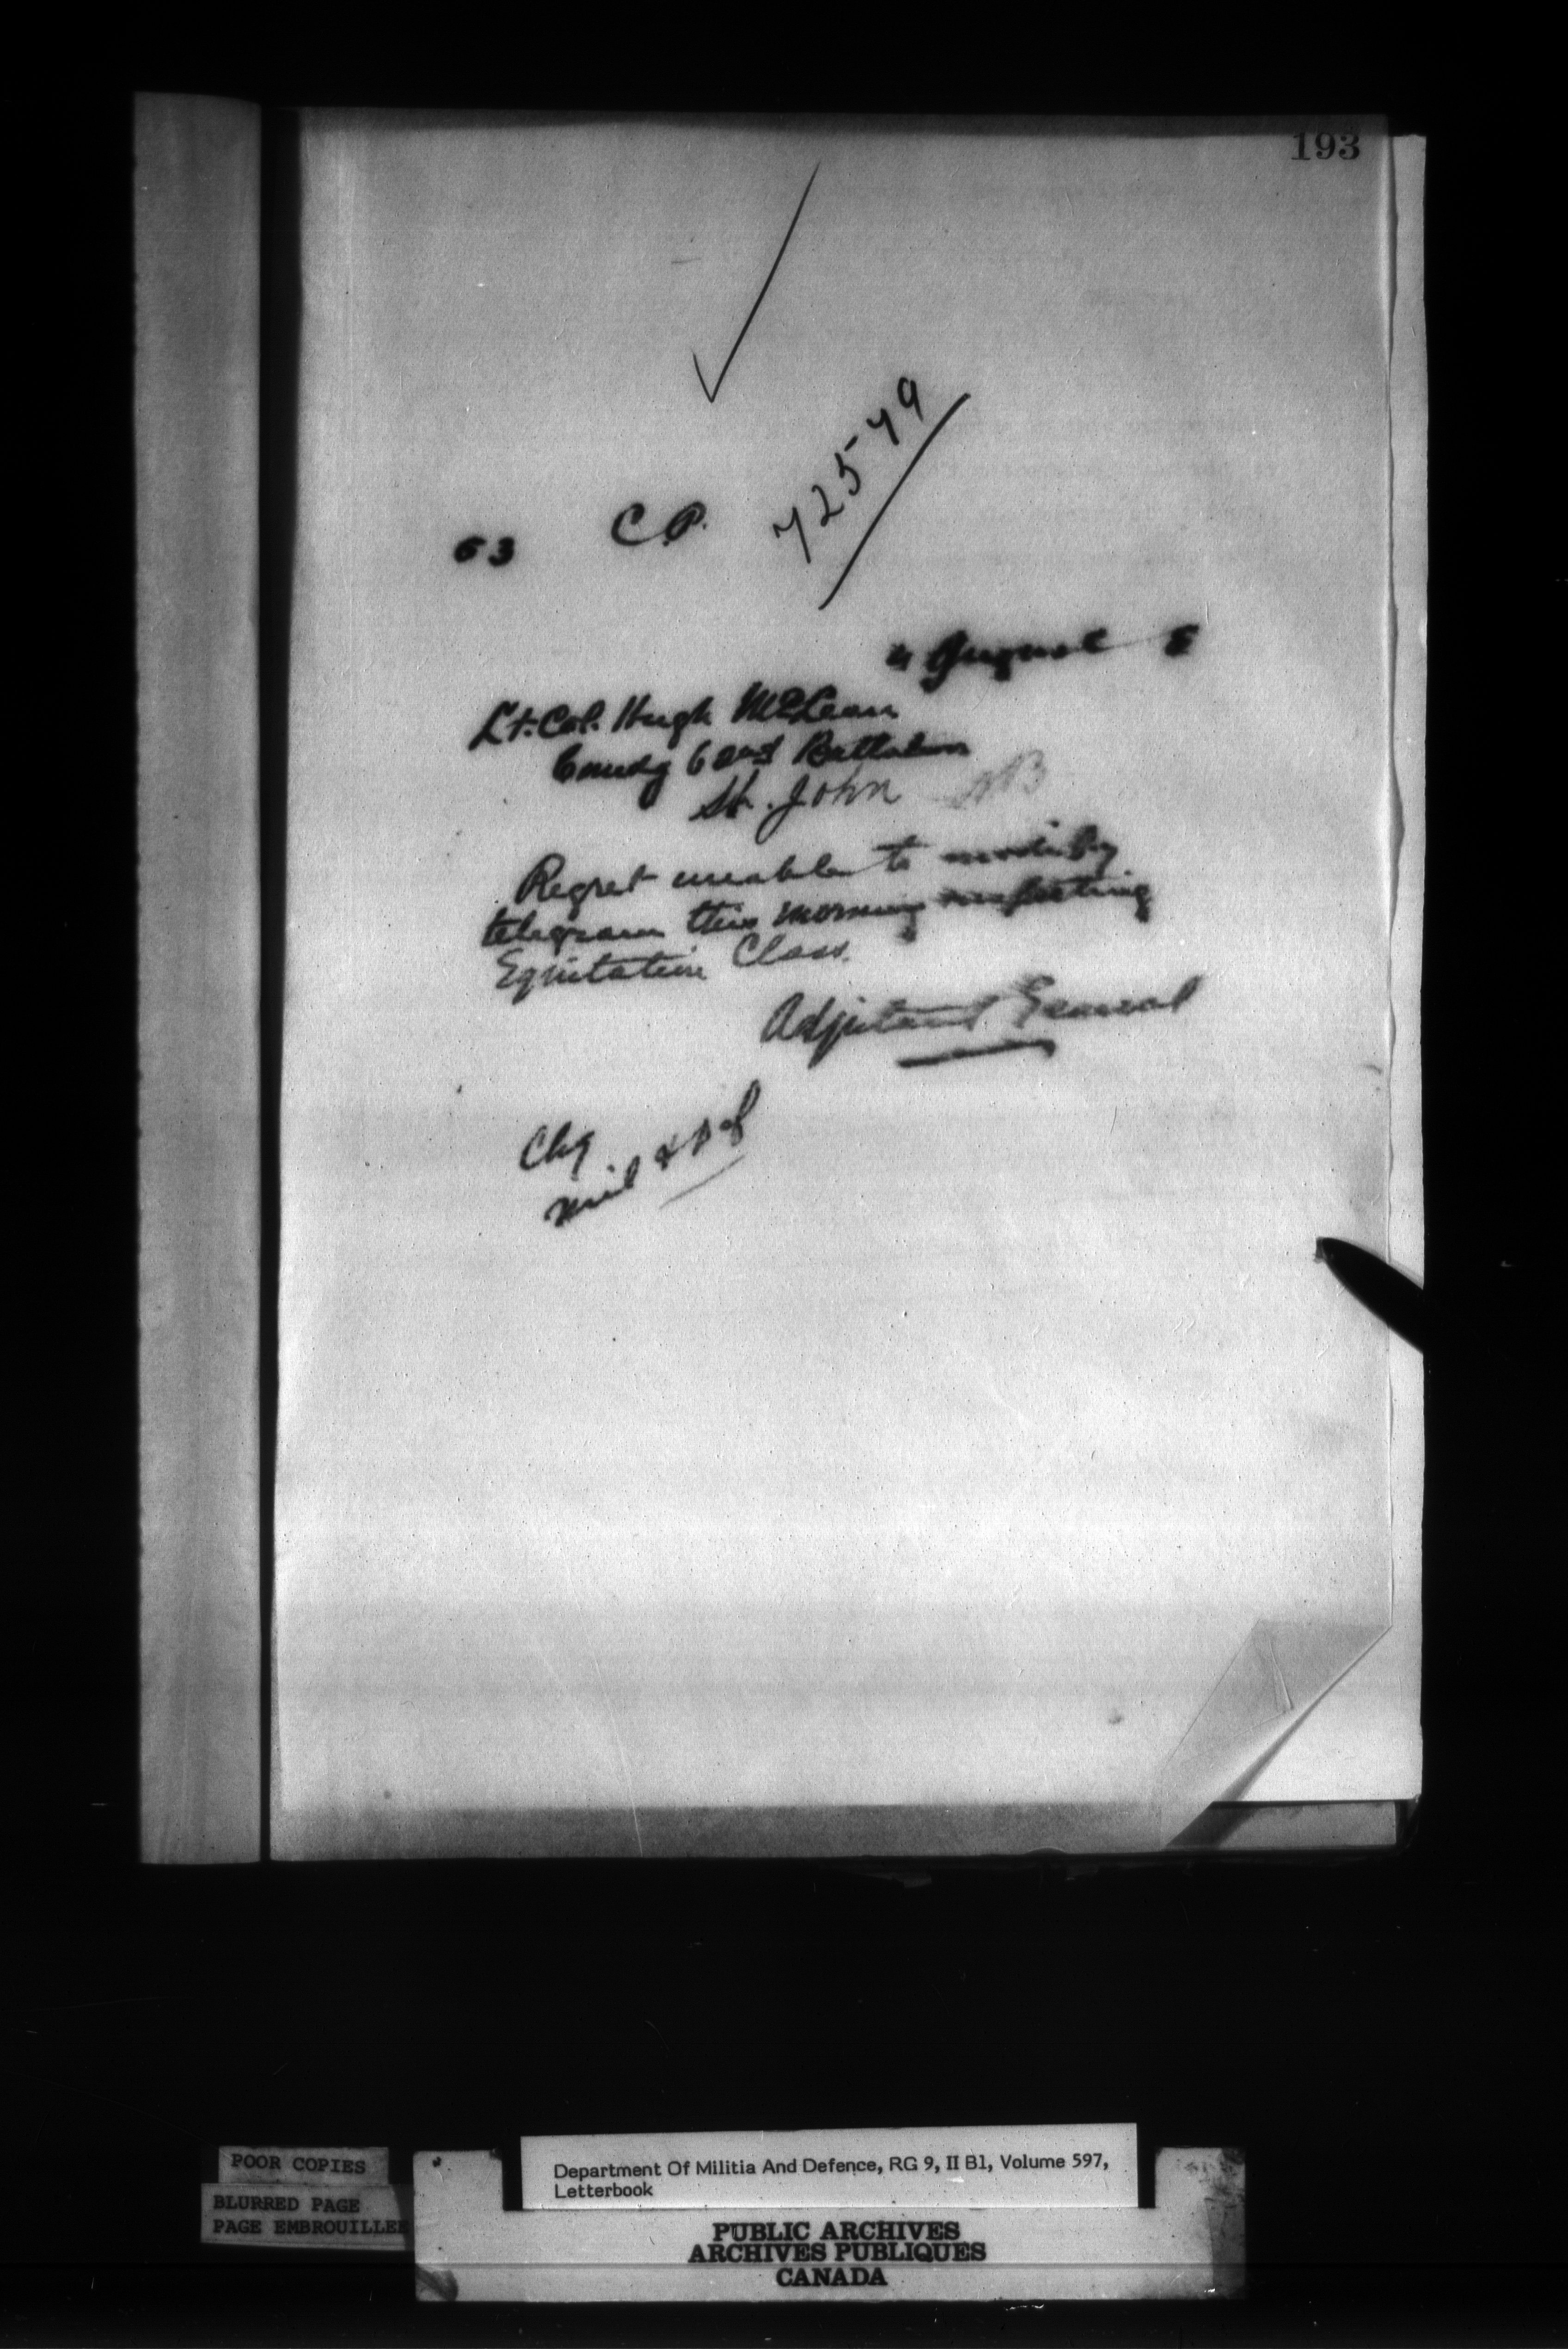 193
63 C.P. 72579
4 August
Lt. Col. Hugh McLean
Comdg 62nd Battalion
St. John NB
Regret unable to modify
telegram this morning respecting
Equitation Class.
Adjutant General
Chg
Mil & Def
POOR COPIES
BLURRED PAGE
PAGE EMBROUILLEE
Department Of Militia And Defence, RG 9, II B1, Volume 597,
Letterbook
PUBLIC ARCHIVES
ARCHIVES PUBLIQUES
CANADA